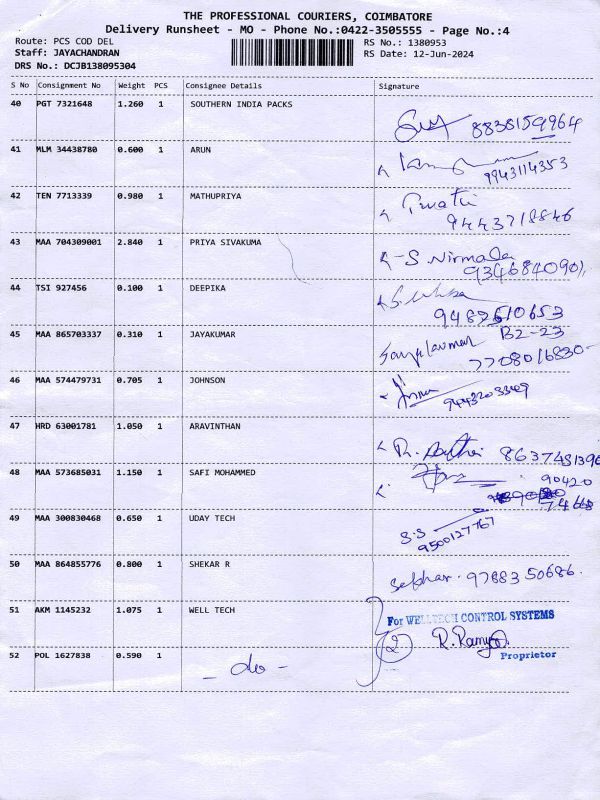 THE PROFESSIONAL COURIERS, COIMBATORE
Delivery Runsheet - MO - Phone No.:0422-3505555 - Page No.:4
Route: PCS COD DEL
Staff: JAYACHANDRAN
DRS No.: DCJB138095304
RS No.: 1380953
RS Date: 12-Jun-2024
S No Consignment No Weight PCS Consignee Details Signature
40 PGT 7321648 1.260 1 SOUTHERN INDIA PACKS
8838159964
41 MLM 34438780 0.600 1 ARUN
9943114353
42 TEN 7713339 0.980 1 MATHUPRIYA
9443718846
43 MAA 704309001 2.840 1 PRIYA SIVAKUMA
S. Nirmala
9346840901
44 TSI 927456 0.100 1 DEEPIKA
9487610653
45 MAA 865703337 0.310 1 JAYAKUMAR
B2-23
7708016830-
46 MAA 574479731 0.705 1 JOHNSON
9443203349
47 HRD 63001781 1.050 1 ARAVINTHAN
8637481396
48 MAA 573685031 1.150 1 SAFI MOHAMMED
90420
49 MAA 300830468 0.650 1 UDAY TECH
S.S
9500127767
50 MAA 864855776 0.800 1 SHEKAR R
9788350686.
51 AKM 1145232 1.075 1 WELL TECH
For WELLTECH CONTROL SYSTEMS
2
R. Ramya
Proprietor
52 POL 1627838 0.590 1
- do -